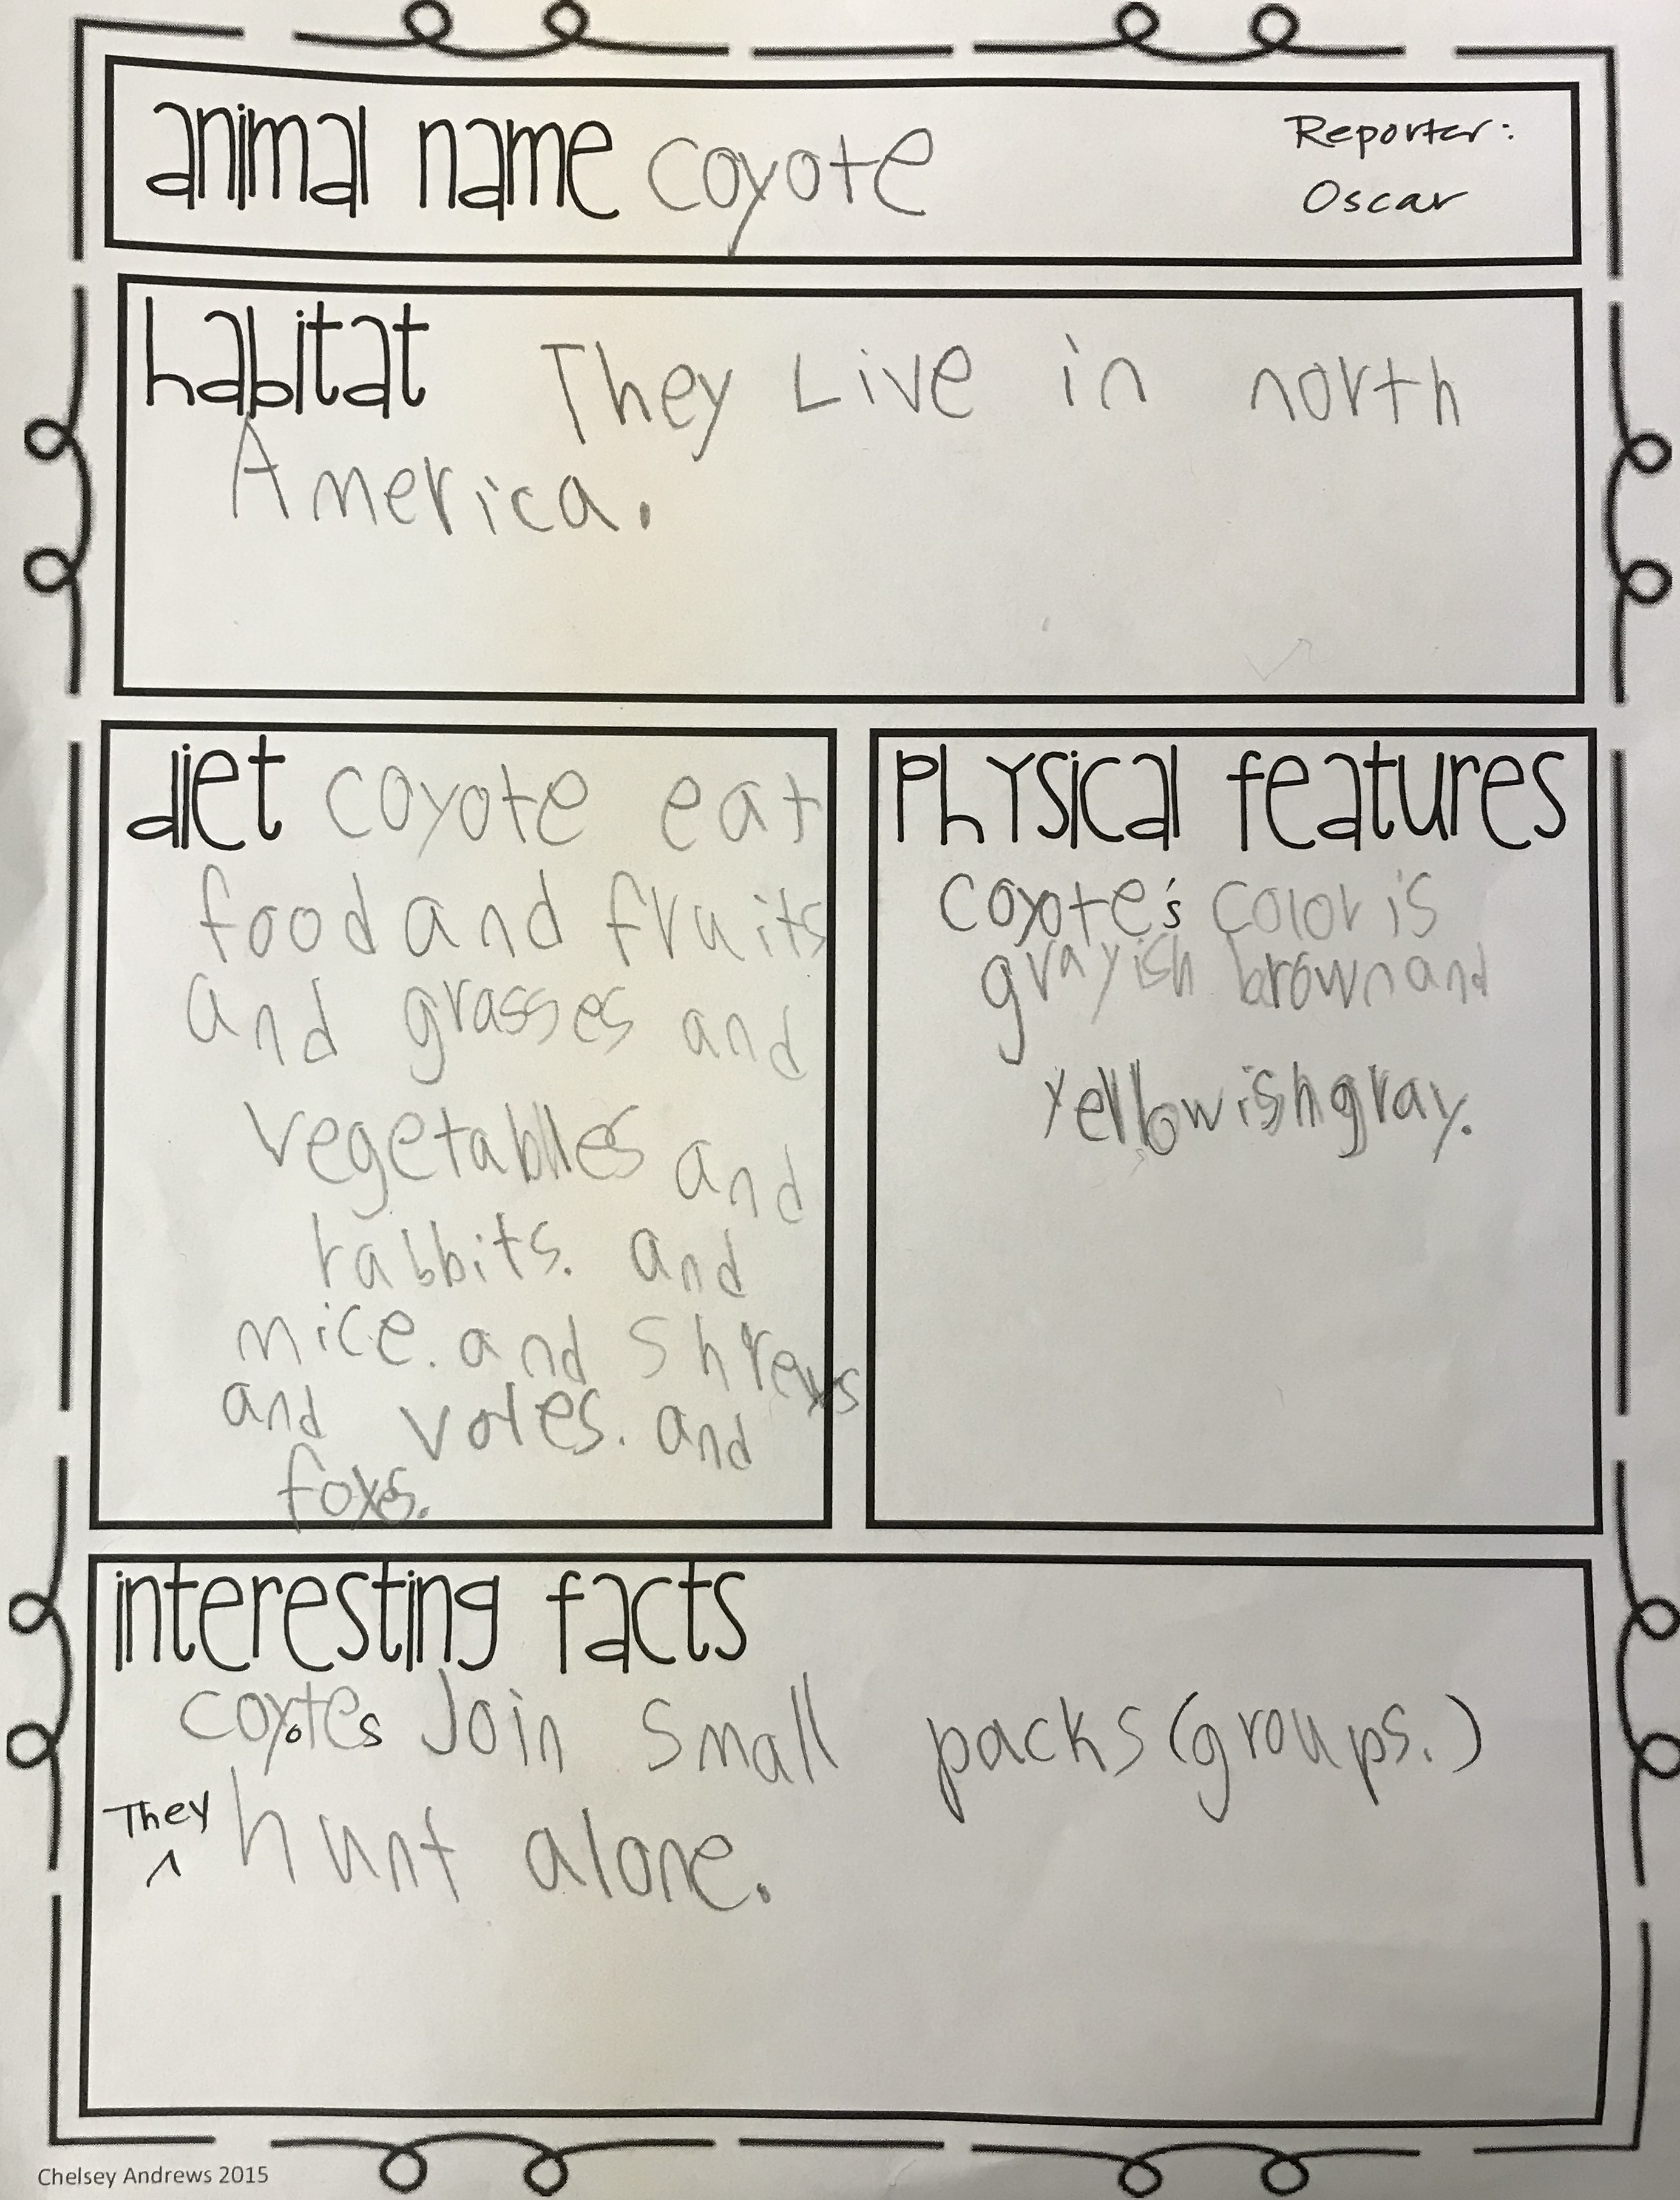 animal name coyote
Reporter:
Oscar
habitat They Live in north
America.
diet coyote eat
food and fruits
and grasses and
vegetablles and
rabbits. and
mice. and shrews
and voles. and
foxes.
Physical features
coyote's color is
grayish brown and
yellowish gray.
interesting facts
coyotes Join Small packs (groups.)
They
^ hunt alone.
Chelsey Andrews 2015